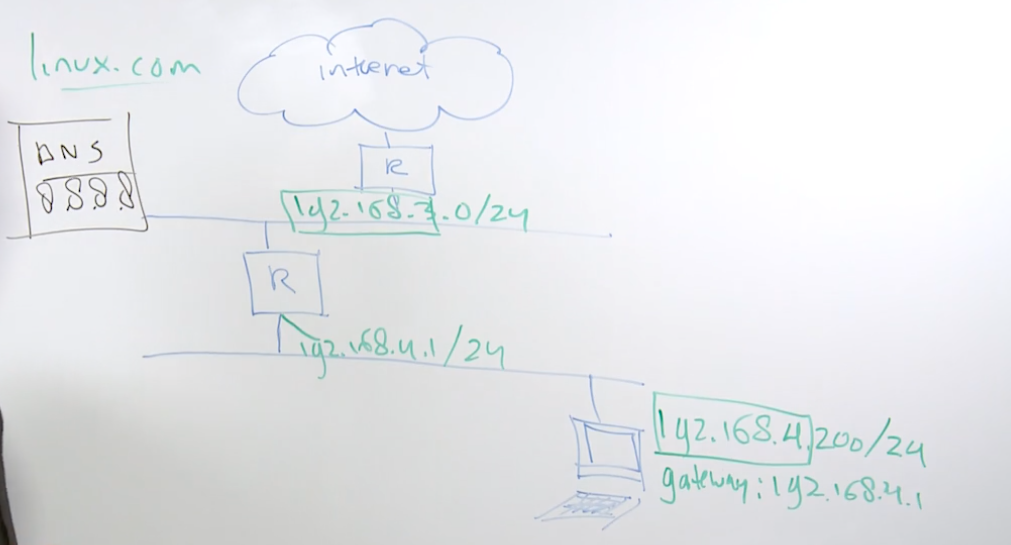 linux.com
internet
DNS
8888
R
192.168.3.0/24
R
192.168.4.1/24
192.168.4.200/24
gateway: 192.168.4.1